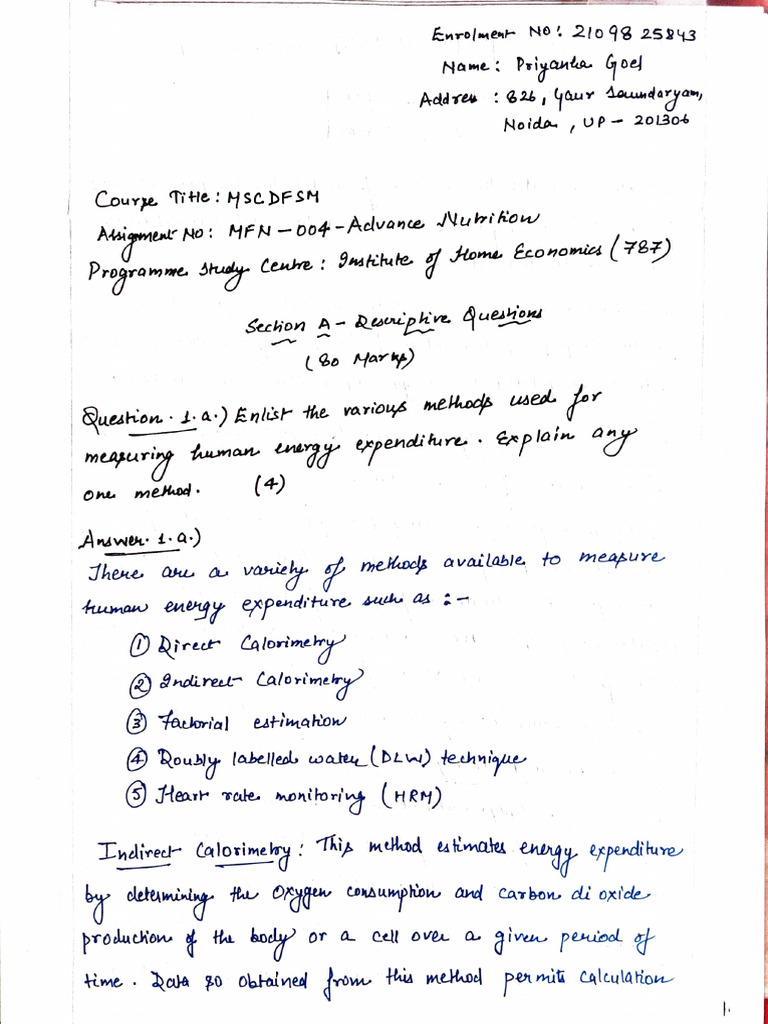 Enrolment No: 2109825843
Name: Priyanka Goel
Address: 826, Gaur Saundaryam,
Noida, UP - 201306
Course Title: MSCDFSM
Assignment No: MFN-004-Advance Nutrition
Programme Study Centre: Institute of Home Economics (787)
Section A - Descriptive Questions
(80 Marks)
Question. 1.a.) Enlist the various methods used for
measuring human energy expenditure. Explain any
one method. (4)
Answer. 1.a.)
There are a variety of methods available to measure
human energy expenditure such as :-
① Direct Calorimetry
② Indirect Calorimetry
③ Factorial estimation
④ Doubly labelled water (DLW) technique
⑤ Heart rate monitoring (HRM)
Indirect Calorimetry: This method estimates energy expenditure
by determining the Oxygen consumption and carbon di oxide
production of the body or a cell over a given period of
time. Data so obtained from this method permits calculation
1.